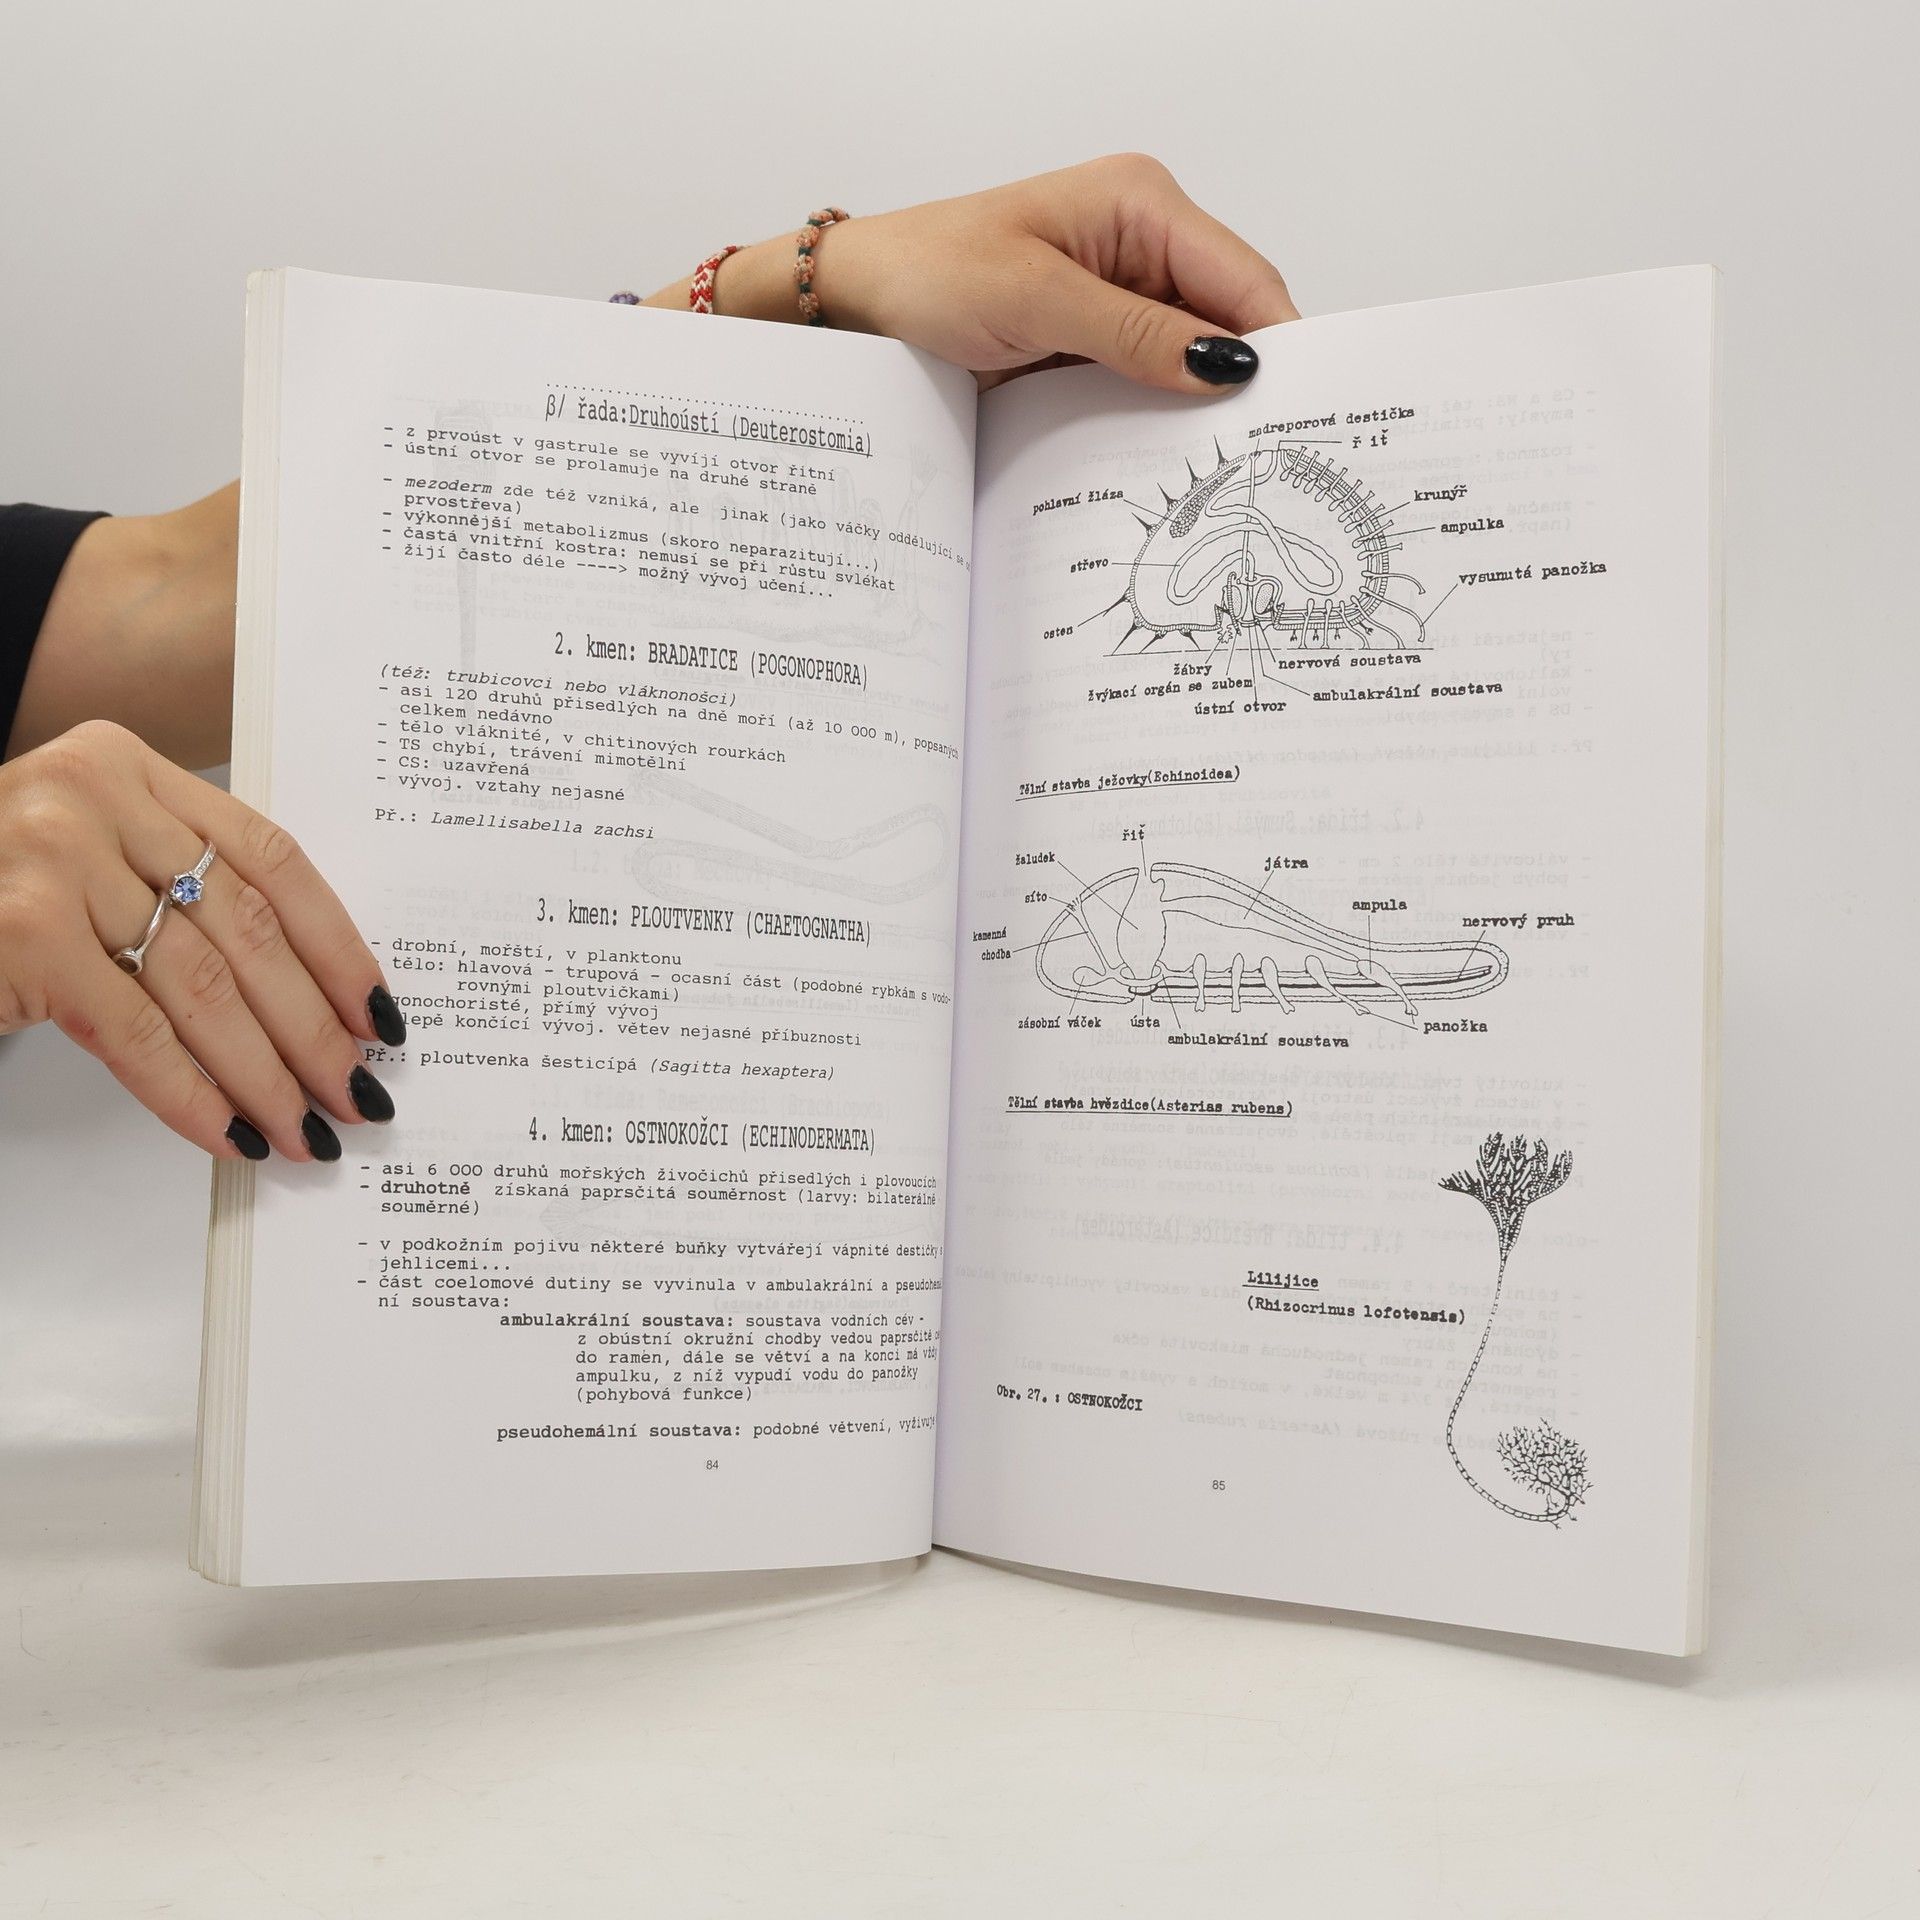 β/ řada:Druhoústí (Deuterostomia)
- z prvoúst v gastrule se vyvíjí otvor řitní
- ústní otvor se prolamuje na druhé straně
- mezoderm zde též vzniká, ale jinak (jako váčky oddělující se
prvostřeva)
- výkonnější metabolizmus (skoro neparazitují...)
- častá vnitřní kostra: nemusí se při růstu svlékat
- žijí často déle ----> možný vývoj učení...
2. kmen: BRADATICE (POGONOPHORA)
(též: trubicovci nebo vláknonošci)
- asi 120 druhů přisedlých na dně moří (až 10 000 m), popsaných
celkem nedávno
- tělo vláknité, v chitinových rourkách
- TS chybí, trávení mimotělní
- CS: uzavřená
- vývoj. vztahy nejasné
Př.: Lamellisabella zachsi
3. kmen: PLOUTVENKY (CHAETOGNATHA)
- drobní, mořští, v planktonu
- tělo: hlavová - trupová - ocasní část (podobné rybkám s vodo-
rovnými ploutvičkami)
gonochoristé, přímý vývoj
lepě končící vývoj. větev nejasné příbuznosti
Př.: ploutvenka šesticípá (Sagitta hexaptera)
4. kmen: OSTNOKOŽCI (ECHINODERMATA)
- asi 6 000 druhů mořských živočichů přisedlých i plovoucích
- druhotně získaná paprsčitá souměrnost (larvy: bilaterálně
souměrné)
- v podkožním pojivu některé buňky vytvářejí vápnité destičky s
jehlicemi...
- část coelomové dutiny se vyvinula v ambulakrální a pseudohemál
ní soustava:
ambulakrální soustava: soustava vodních cév -
z obústní okružní chodby vedou paprsčité
do ramen, dále se větví a na konci má vždy
ampulku, z níž vypudí vodu do panožky
(pohybová funkce)
pseudohemální soustava: podobné větvení, vyživuje
84
madreporová destička
řiť
pohlavní žláza
krunýř
ampulka
střevo
vysunutá panožka
osten
žábry
nervová soustava
žvýkací orgán se zubem
ambulakrální soustava
ústní otvor
Tělní stavba ježovky(Echinoidea)
řiť
žaludek
játra
síto
ampula
nervový pruh
kamenná
chodba
zásobní váček
ústa
panožka
ambulakrální soustava
Tělní stavba hvězdice(Asterias rubens)
Lilijice
(Rhizocrinus lofotensis)
Obr. 27. : OSTNOKOŽCI
85